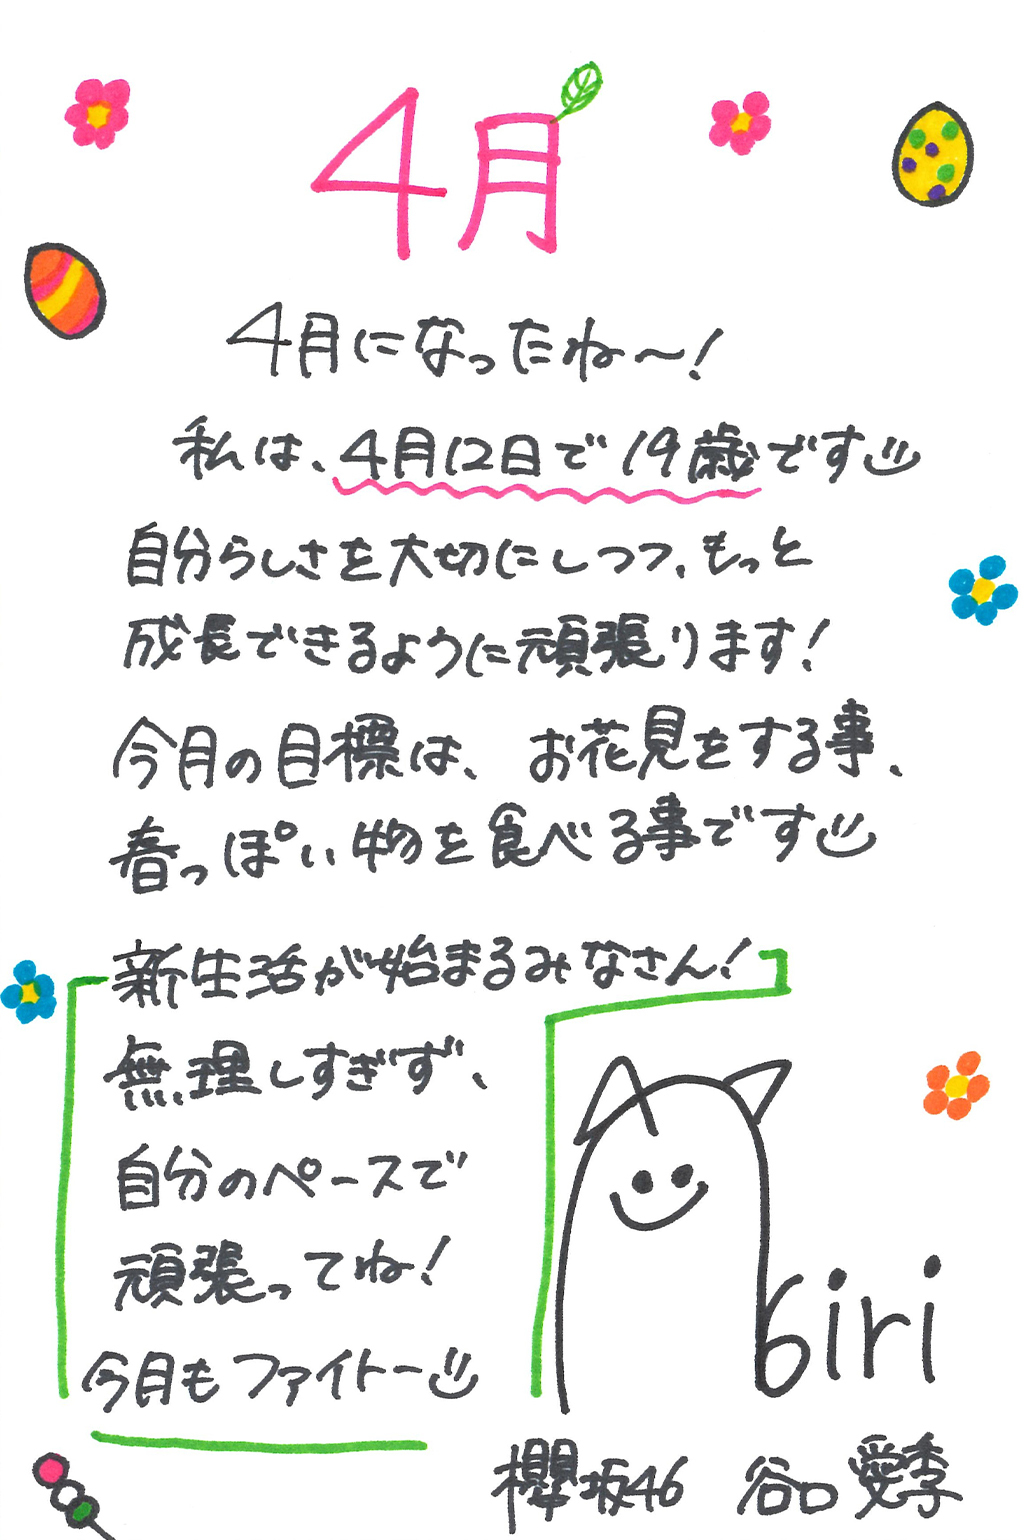 4月
4月になったね〜!
私は、4月12日で19歳です
自分らしさを大切にしつつ、もっと
成長できるように頑張ります!
今月の目標は、お花見をする事、
春っぽい物を食べる事です
新生活が始まるみなさん!
無理しすぎず、
自分のペースで
頑張ってね!
今月もファイトー
biri
櫻坂46 谷口愛季